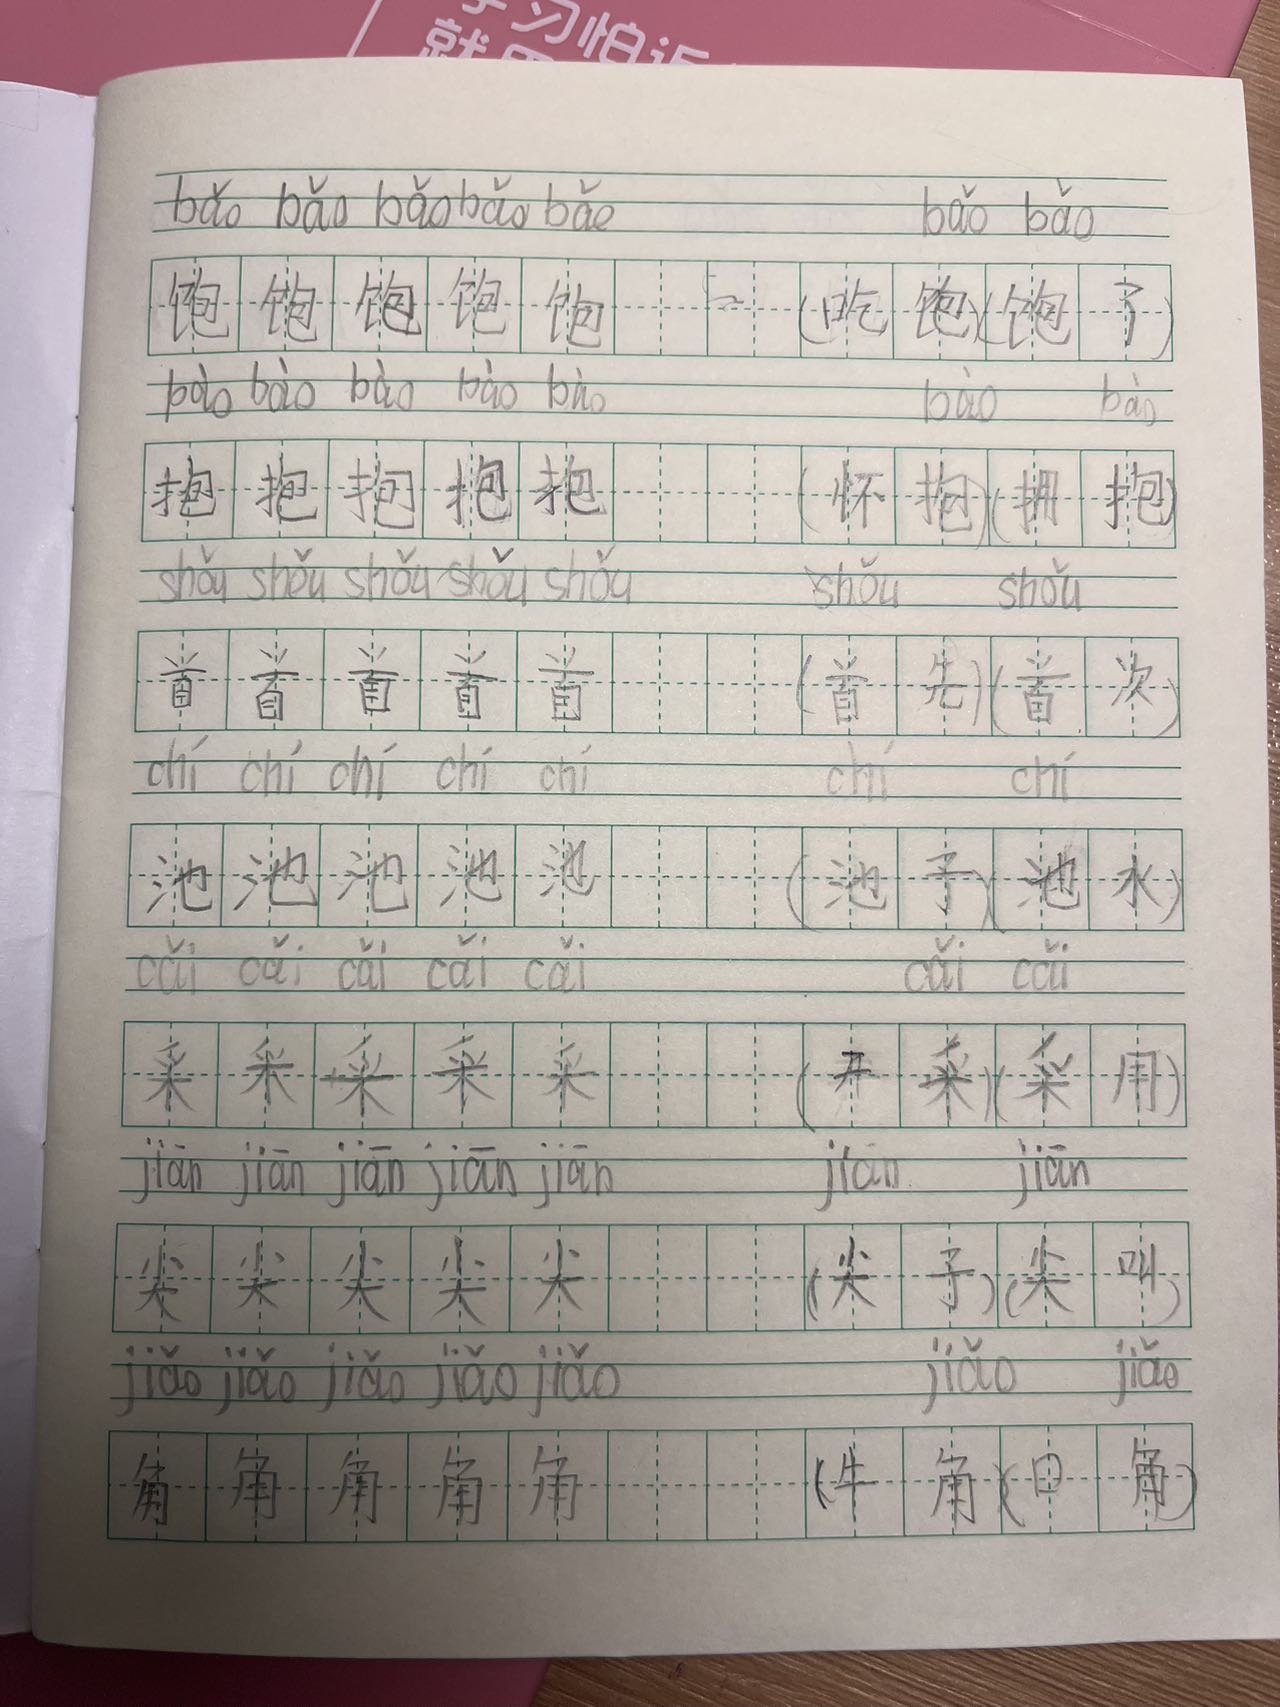 学习怕近
bǎo bǎo bǎo bǎo bǎo bǎo bǎo
饱 饱 饱 饱 饱 (吃 饱)(饱 了)
bào bào bào bào bào bào bào
抱 抱 抱 抱 抱 (怀 抱)(拥 抱)
shǒu shǒu shǒu shǒu shǒu shǒu shǒu
首 首 首 首 首 (首 先)(首 次)
chí chí chí chí chí chí chí
池 池 池 池 池 (池 子)(池 水)
cǎi cǎi cǎi cǎi cǎi cǎi cǎi
采 采 采 采 采 (开 采)(采 用)
jiān jiān jiān jiān jiān jiān jiān
尖 尖 尖 尖 尖 (尖 子)(尖 叫)
jiǎo jiǎo jiǎo jiǎo jiǎo jiǎo jiǎo
角 角 角 角 角 (牛 角)(口 角)